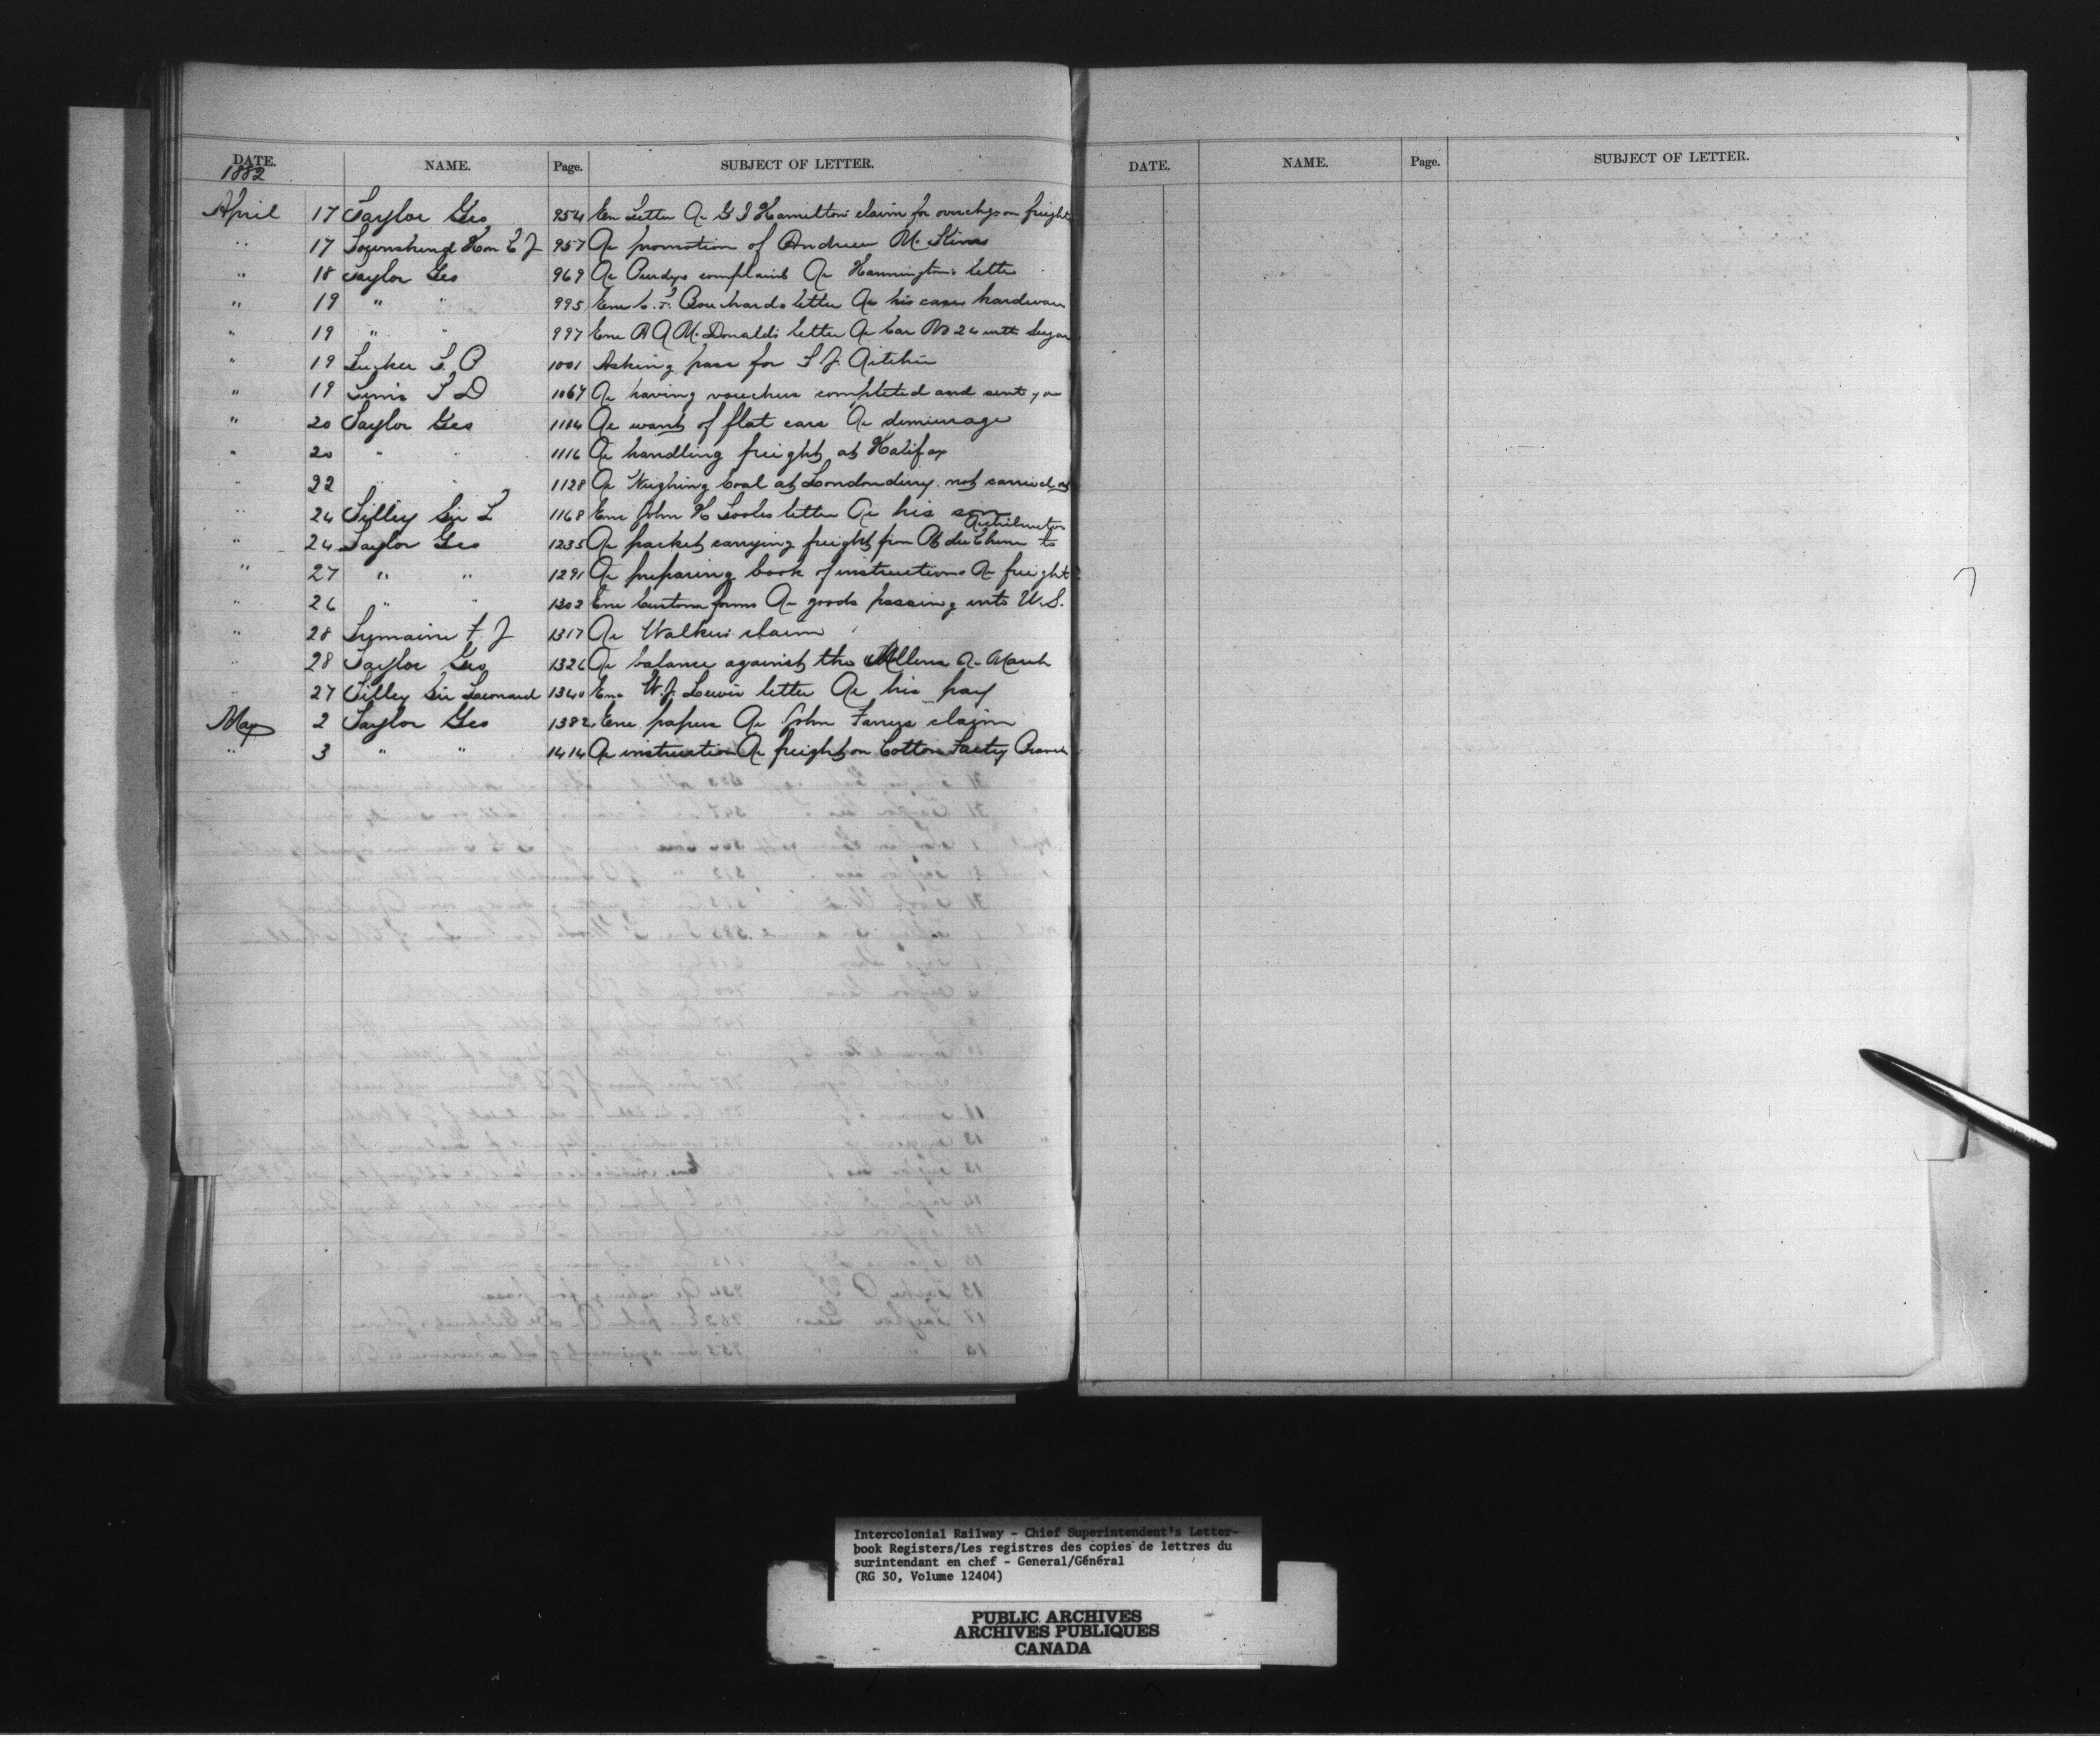 DATE. NAME. Page. SUBJECT OF LETTER.
1882
April 17 Taylor Geo 954 Enc Letter Re G I Hamiltons claim for overchgs on freight
" 17 Townshend Hon C J 957 Re promotion of Andrew
" 18 Taylor Geo 969 Re Purdys complaint Re Hanningtons letter
" 19 " " 995 Enc Bouchards letter Re his case hardware
" 19 " " 997 Enc R A McDonalds letter Re Car No 24 with Sugar
" 19 Tucker 1001 Asking pass for T J Ritchie
" 19 Tims T D 1067 Re having vouchers completed and sent you
" 20 Taylor Geo 1104 Re want of flat cars Re demurrage
" 20 " " 1116 Re handling freight at Halifax
" 22 " " 1128 Re Weighing Coal at Londonderry not carried out
" 24 Tilley Sir L 1168 Enc John H Tooles letter Re his son
" 24 Taylor Geo 1235 Re packet carrying freight from Pt du Chene to
" 27 " " 1291 Re preparing book of instructions Re freight
" 26 " " 1302 Enc Customs forms Re goods passing into U.S.
" 28 Tremaine F J 1317 Re Walkers claim
" 28 Taylor Geo 1326 Re balance against the Allens Re March
" 27 Tilley Sir Leonard 1340 Enc W. J. Lewis letter Re his pay
May 2 Taylor Geo 1382 Enc papers Re John claim
" 3 " " 1414 Re instruction Re freight on Cotton Facty Branch
DATE. NAME. Page. SUBJECT OF LETTER.
Intercolonial Railway - Chief Superintendent's Letter-
book Registers/Les registres des copies de lettres du
surintendant en chef - General/Général
(RG 30, Volume 12404)
PUBLIC ARCHIVES
ARCHIVES PUBLIQUES
CANADA